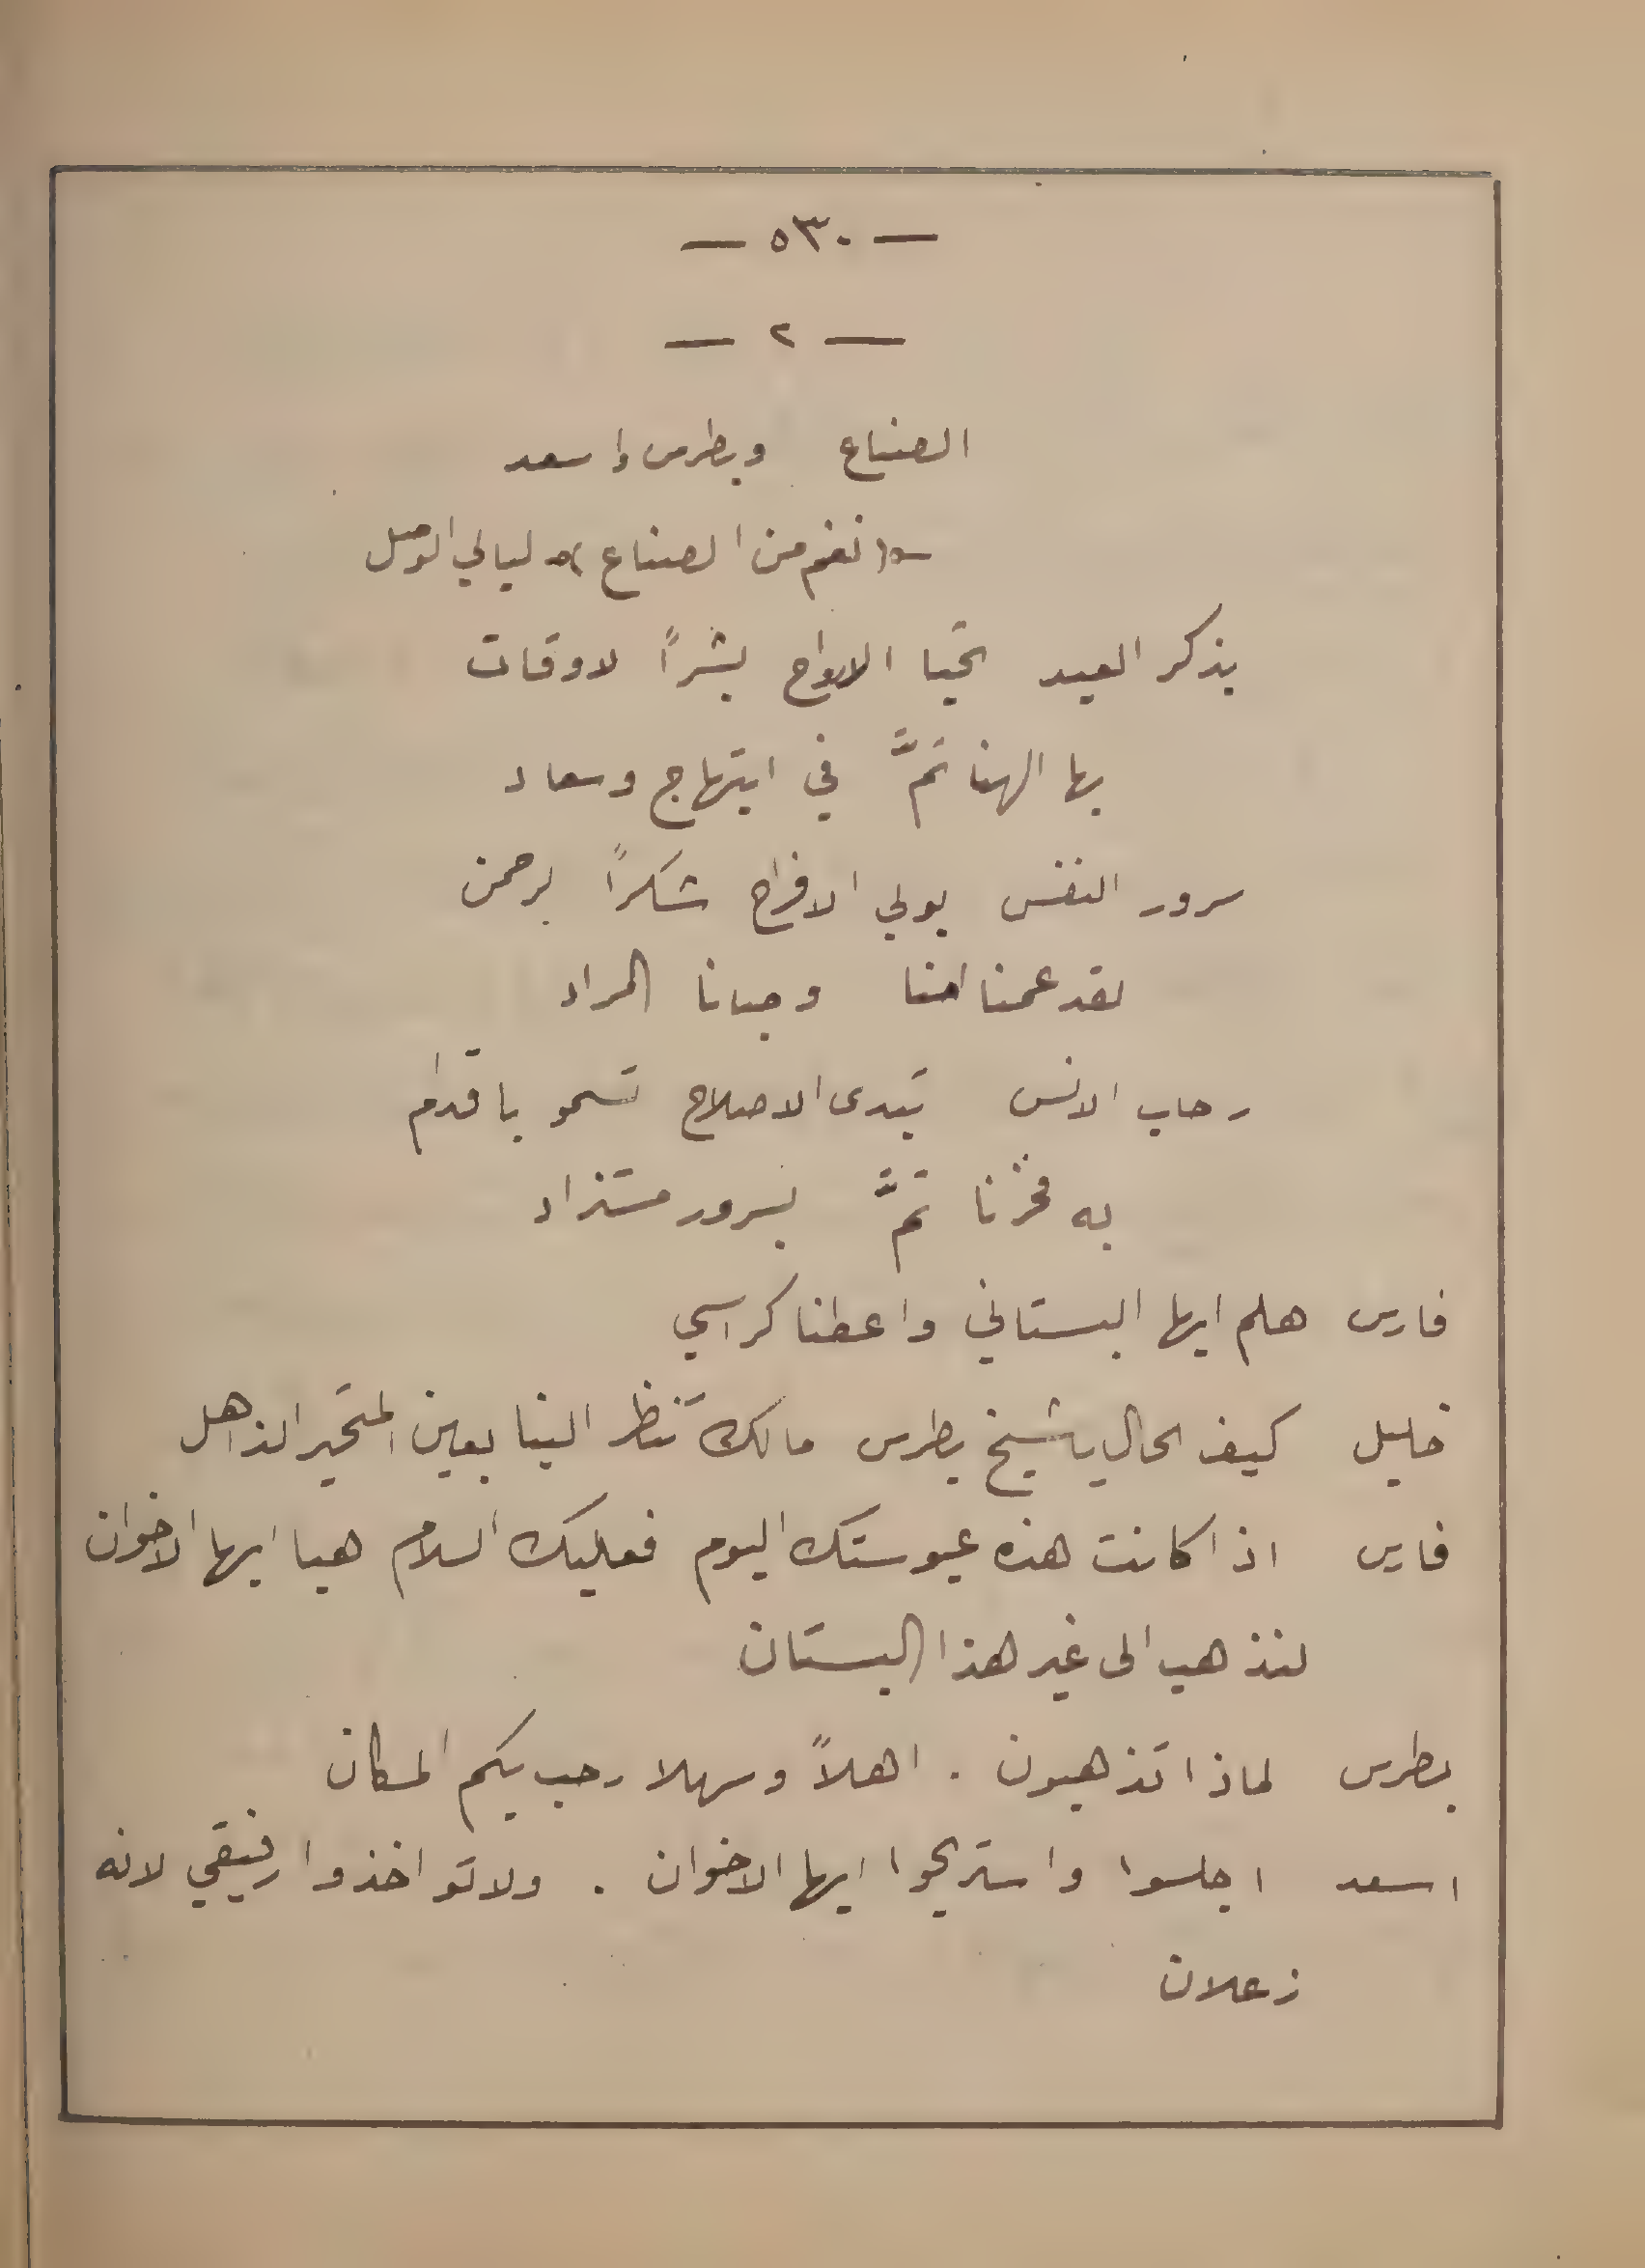 — ٥٣٠ —
— ٢ —
الصناع وبطرس واسعد
(نغم من الصناع) ليالي الوصل
بذكر العيد تحيا الارواح بشراً لاوقات
بها الهنا تمَّ في ابتهاج وسعاد
سرور النفس يولي الافراح شكراً لرحمن
لقد عمنا امنا وحبانا المراد
رحاب الانس تبدى الاصلاح تسمو باقدام
به فخرنا تمَّ بسرور مستزاد
فارس هلم ايها البستاني واعطنا كراسي
خليل كيف الحال يا شيخ بطرس مالك تنظر الينا بعين المتحير الذاهل
فارس اذا كانت هذه عبوستك اليوم فعليك السلام هيا ايها الاخوان
لنذهب الى غير هذا البستان
بطرس لماذا تذهبون . اهلاً وسهلا رحب بكم المكان
اسعد اجلسوا واستريحوا ايها الاخوان . ولا تواخذوا رفيقي لانه
زعلان